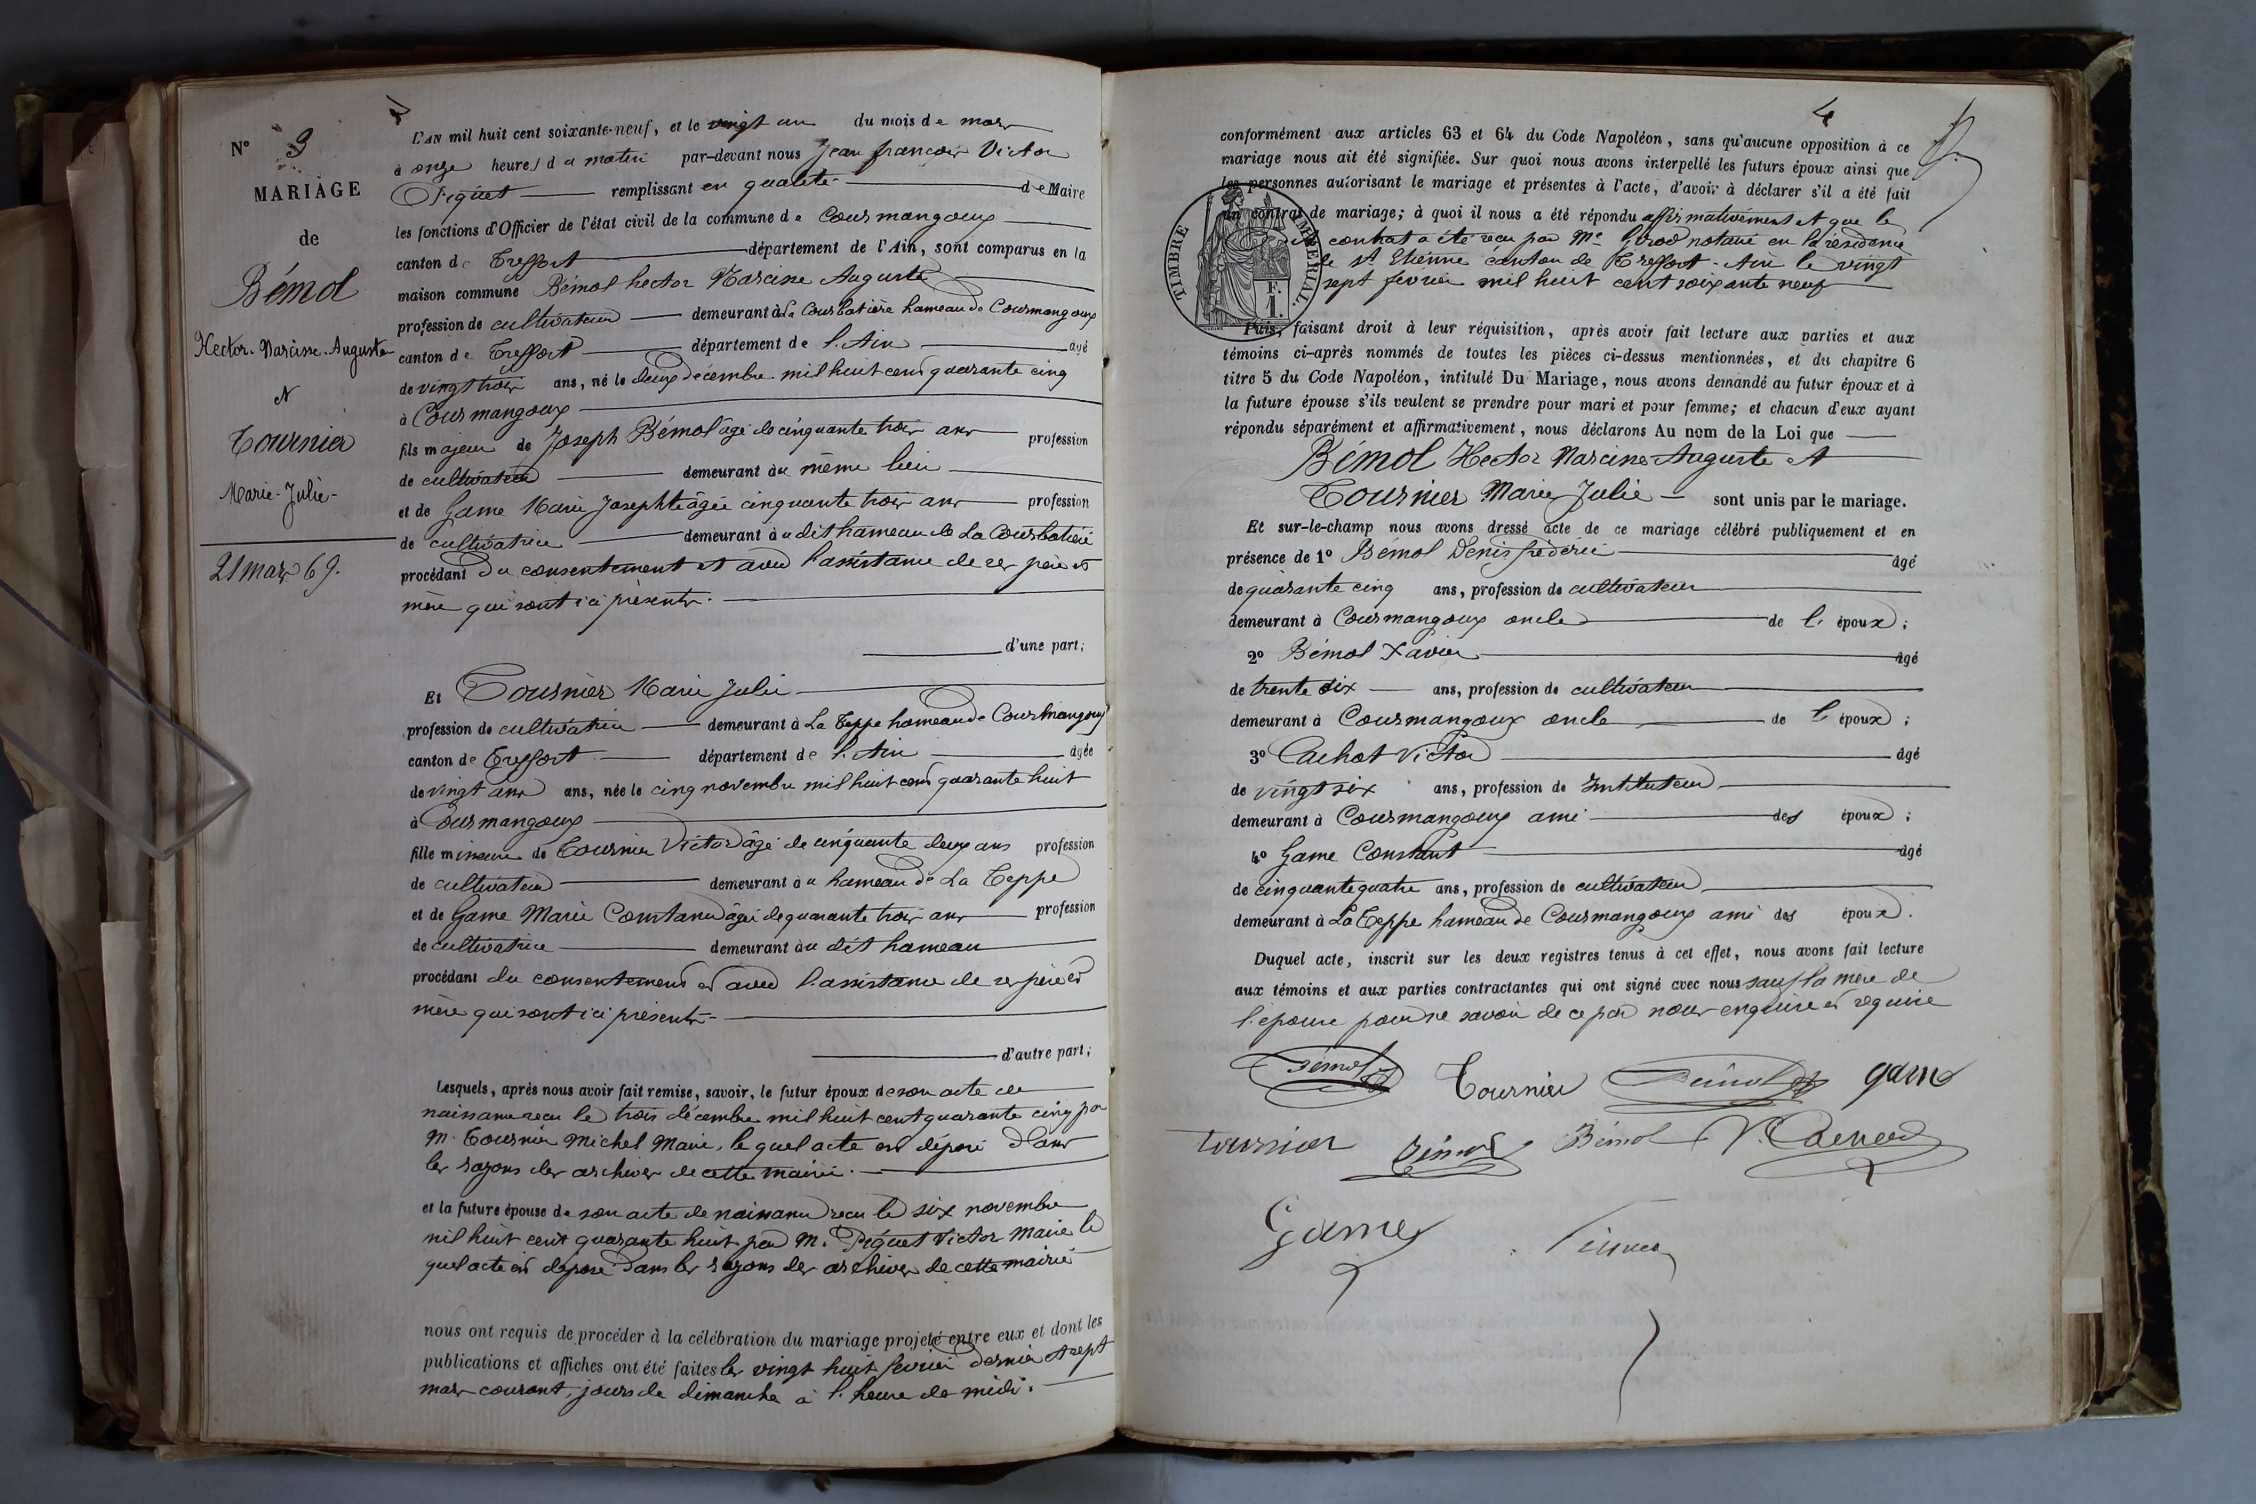 N° 3
MARIAGE
de
Bémol
Hector-Narcisse-Auguste
et
Tournier
Marie-Julie-
21 mars 69.
L'AN mil huit cent soixante-neuf, et le vingt un du mois de mars
à onze heures du matin par-devant nous Jean françois Victor
Piquet remplissant en qualité de Maire
les fonctions d'Officier de l'état civil de la commune de Cousmangoux
canton de Treffort département de l'Ain, sont comparus en la
maison commune Bémol hector Narcisse Auguste
profession de cultivateur demeurant à La Coursbatière hameau de Cousmangoux
canton de Treffort département de l'Ain âgé
de vingt trois ans, né le deux décembre mil huit cent quarante cinq
à Cousmangoux
fils majeur de Joseph Bémol âgé de cinquante trois ans profession
de cultivateur demeurant au même lieu
et de Game Marie Josephte âgée cinquante trois ans profession
de cultivatrice demeurant au dit hameau de La Coursbatière
procédant du consentement et avec l'assistance de ses père et
mère qui sont ici présents.
d'une part;
Et Tournier Marie Julie
profession de cultivatrice demeurant à La Teppe hameau de Cousmangoux
canton de Treffort département de l'Ain âgée
de vingt ans ans, née le cinq novembre mil huit cent quarante huit
à Cousmangoux
fille mineure de Tournier Victor âgé de cinquante deux ans profession
de cultivateur demeurant au hameau de La Teppe
et de Game Marie Constance âgée de quarante trois ans profession
de cultivatrice demeurant au dit hameau
procédant du consentement et avec l'assistance de ses père et
mère qui sont ici présents.
d'autre part;
Lesquels, après nous avoir fait remise, savoir, le futur époux de son acte de
naissance recu le trois décembre mil huit cent quarante cinq par
M. Tournier Michel Maire, le quel acte est déposé dans
les rayons des archives de cette mairie.
et la future épouse de son acte de naissance recu le six novembre
mil huit cent quarante huit par M. Piquet Victor Maire le
quel acte est déposé dans les rayons des archives de cette mairie
nous ont requis de procéder à la célébration du mariage projeté entre eux et dont les
publications et affiches ont été faites les vingt huit février dernier et sept
mars courant, jours de dimanche à l'heure de midi.
4
conformément aux articles 63 et 64 du Code Napoléon, sans qu'aucune opposition à ce
mariage nous ait été signifiée. Sur quoi nous avons interpellé les futurs époux ainsi que
les personnes autorisant le mariage et présentes à l'acte, d'avoir à déclarer s'il a été fait
un contrat de mariage; à quoi il nous a été répondu affirmativement et que le
contrat a été recu par Me Girod notaire en la résidence
de St Etienne canton de Treffort - Ain le vingt
sept février mil huit cent soixante neuf
TIMBRE IMPÉRIAL.
1 F.
Puis, faisant droit à leur réquisition, après avoir fait lecture aux parties et aux
témoins ci-après nommés de toutes les pièces ci-dessus mentionnées, et du chapitre 6
titre 5 du Code Napoléon, intitulé Du Mariage, nous avons demandé au futur époux et à
la future épouse s'ils veulent se prendre pour mari et pour femme; et chacun d'eux ayant
répondu séparément et affirmativement, nous déclarons Au nom de la Loi que
Bémol Hector Narcisse Auguste et
Tournier Marie Julie sont unis par le mariage.
Et sur-le-champ nous avons dressé acte de ce mariage célébré publiquement et en
présence de 1° Bémol Denis frédéric âgé
de quarante cinq ans, profession de cultivateur
demeurant à Cousmangoux oncle de l'époux;
2° Bémol Xavier âgé
de trente six ans, profession de cultivateur
demeurant à Cousmangoux oncle de l'époux;
3° Cachot Victor âgé
de vingt six ans, profession de Instituteur
demeurant à Cousmangoux ami des époux;
4° Game Constant âgé
de cinquante quatre ans, profession de cultivateur
demeurant à La Teppe hameau de Cousmangoux ami des époux.
Duquel acte, inscrit sur les deux registres tenus à cet effet, nous avons fait lecture
aux témoins et aux parties contractantes qui ont signé avec nous sauf la mère de
l'épouse pour ne savoir de ce par nous enquise et requise
Bémol Tournier Bémol game
tournier Bémol Bémol
Game